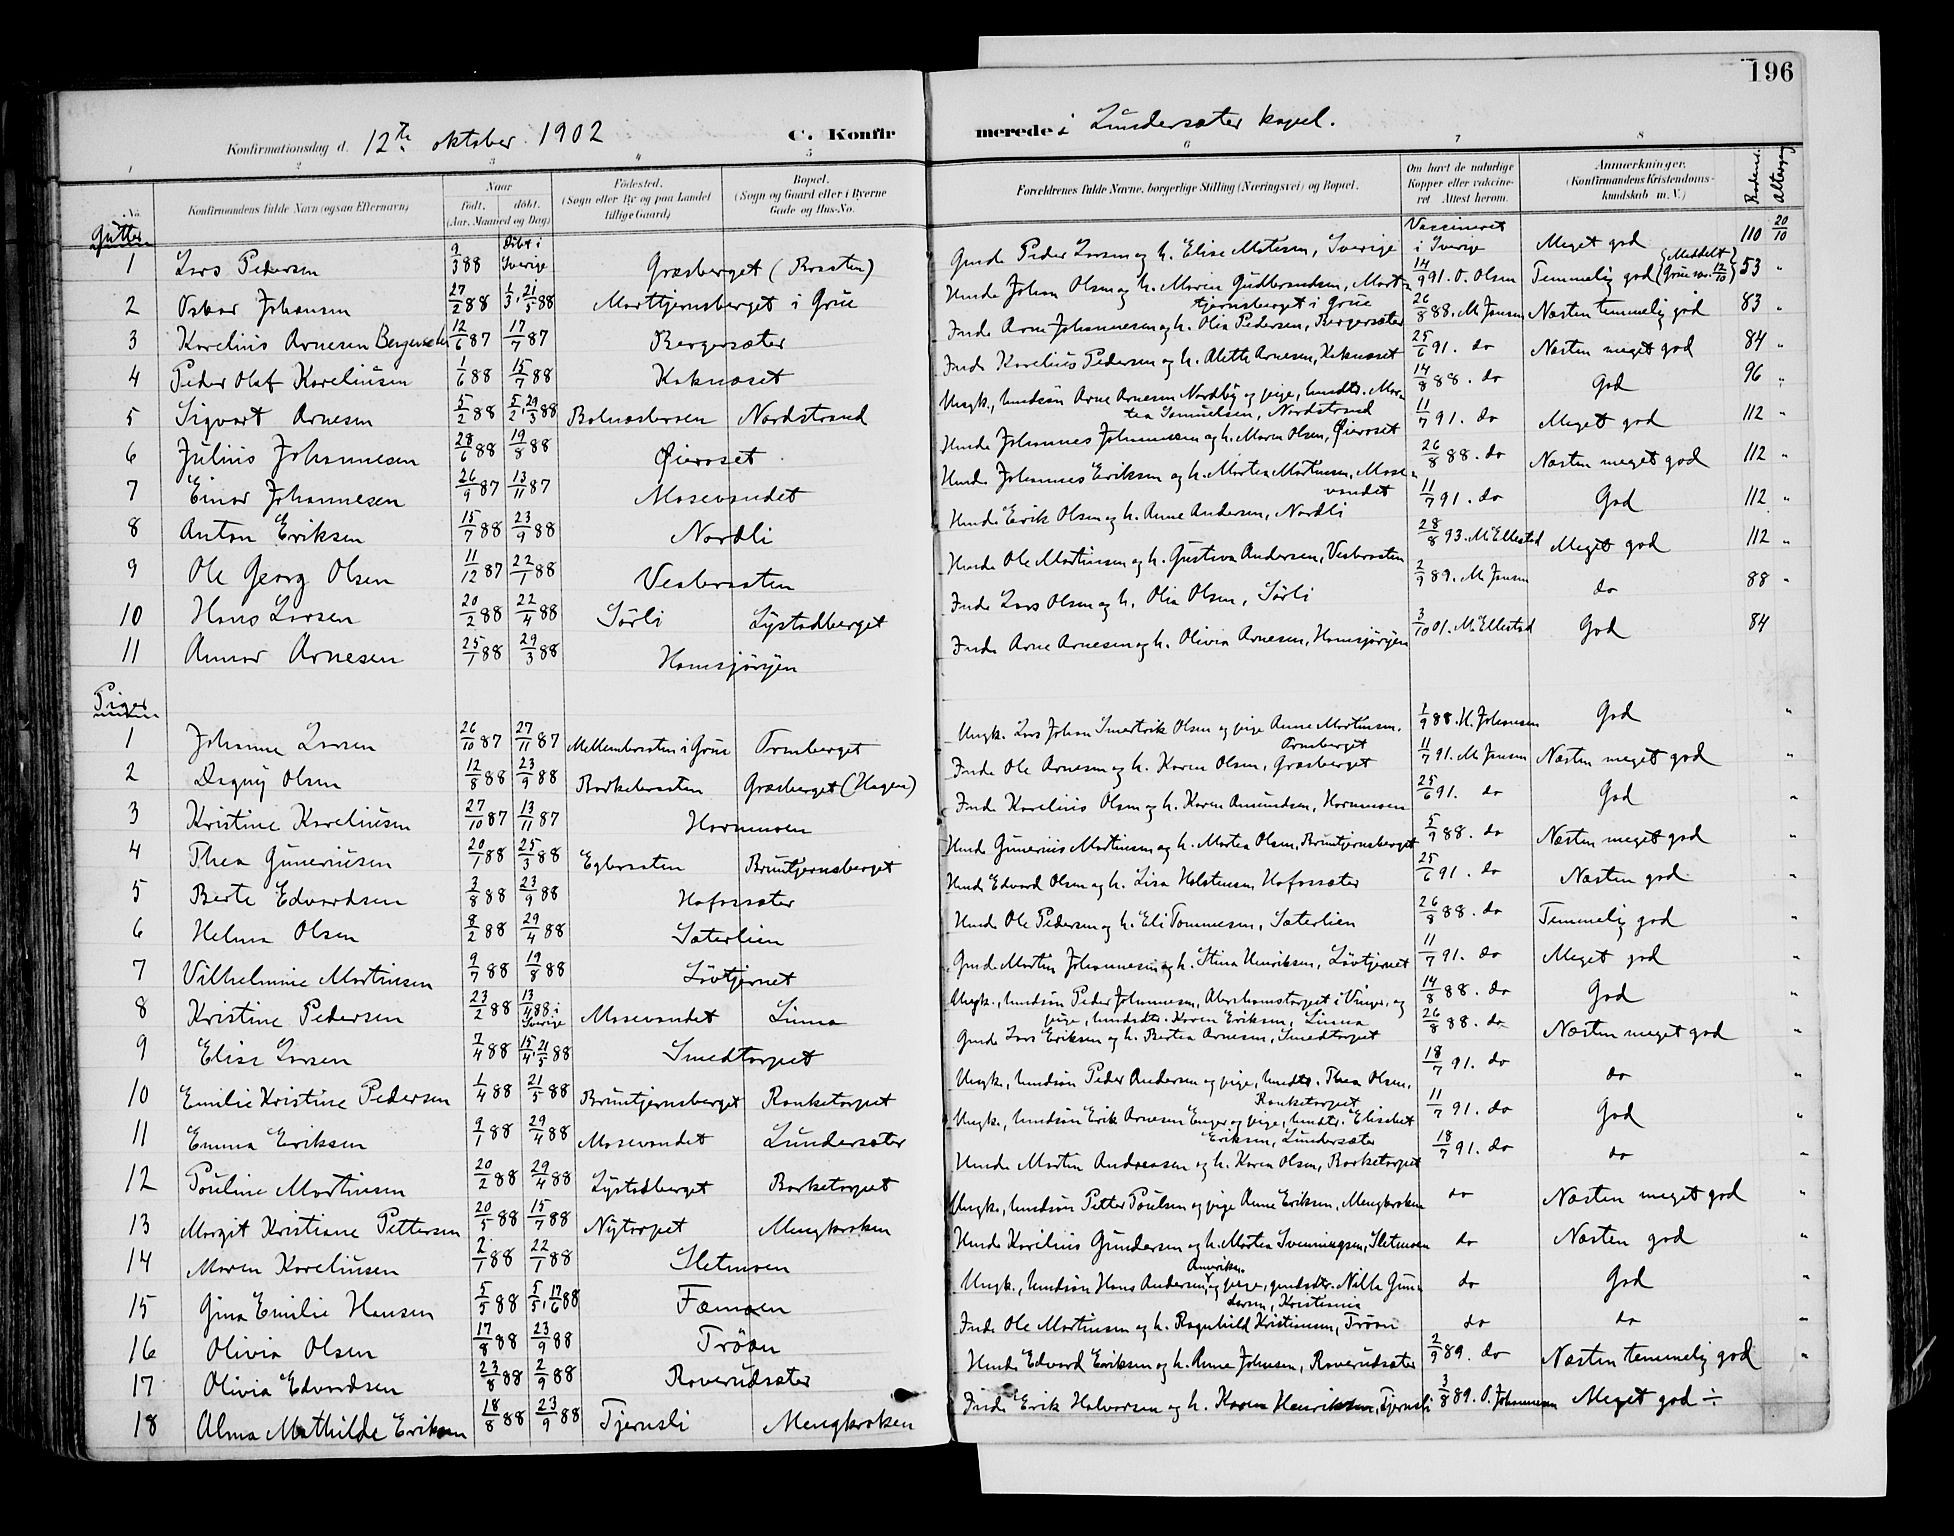 196
Konfirmationsdag d. 12te oktober 1902 C. Konfirmerede i Lundersæter kapel.
1 2 3 4 5 6 7 8
No. Konfirmandens fulde Navn (ogsaa Efternavn) Naar født. døbt. (Aar, Maaned og Dag) Fødested. (Sogn eller By og paa Landet tillige Gaard) Bopæl. (Sogn og Gaard eller i Byerne Gade og Hus-No. Forældrenes fulde Navne, borgerlige Stilling (Næringsvei) og Bopæl. Om havt de naturlige Kopper eller vaccineret. Attest herom. Anmærkninger. (Konfirmandens Kristendomskundskab m. V.) Altergang
Gutter
1 Lars Pedersen 9/3 88 Døbt i Sverige Græsberget (Braaten) Gmd. Peder Larsen og h. Elise Matisen, Sverige Vaccineret i Sverige Meget god 110 20/10
2 Oskar Johansen 27/2 88 1/3, 21/5 88 Morttjernsberget i Grue Hmd. Johan Olsen og h. Maren Gudbrandsen, Morttjernsberget i Grue 14/9 91. O. Olsen Temmelig god (Meddelt Grue 12/10) 53 "
3 Karelius Arnesen Bergersæter 12/6 87 17/7 87 Bergersæter Indr. Arne Johannesen og h. Olia Pedersen, Bergersæter 26/8 88. M. Jensen Næsten temmelig god 83 "
4 Peder Olaf Kareliusen 1/6 88 15/7 88 Kaknæset Indr. Karelius Pedersen og h. Alette Arnesen, Kaknæset 25/6 91. do Næsten meget god 84 "
5 Sigvart Arnesen 5/2 88 5/2, 29/3 88 Bolnæsbersen Nordstrand Ungk., hmdsøn Arne Arnesen Nordby og pige, hmdsdtr. Martea Samuelsen, Nordstrand 14/8 88. do God 96 "
6 Julius Johannesen 28/6 88 19/8 88 Øieraset Hmd. Johannes Johannesen og h. Maren Olsen, Øieraset 11/7 91. do Meget god 112 "
7 Einar Johannesen 26/9 87 13/11 87 Mosevandet Hmd. Johannes Eriksen og h. Martea Martinsen, Mosevandet 26/8 88. do Næsten meget god 112 "
8 Anton Eriksen 15/7 88 23/9 88 Nordli Hmd. Erik Olsen og h. Anne Andersen, Nordli 11/7 91. do God 112 "
9 Ole Georg Olsen 11/12 87 22/1 88 Vesbraaten Hmd. Ole Martinsen og h. Gustava Andersen, Vesbraaten 28/8 93. M. Ellestad Meget god 112 "
10 Hans Larsen 20/2 88 22/4 88 Sørli Lystadberget Indr. Lars Olsen og h. Olia Olsen, Sørli 2/9 89. M. Jensen do 88 "
11 Annar Arnesen 25/1 88 29/3 88 Hamsjøryen Indr. Arne Arnesen og h. Olivia Arnesen, Hamsjøryen 3/10 01. M. Ellestad God 84
Piger
1 Johanne Larsen 26/10 87 27/11 87 Mellembraaten i Grue Ormberget Ungk. Lars Johan Olsen og pige Anne Martinsen, Ormberget 1/9 88. H. Johansen God "
2 Dagny Olsen 12/8 88 23/9 88 Barkebraaten Græsberget (Hagen) Indr. Ole Arnesen og h. Karen Olsen, Græsberget 11/7 91. M. Jensen Næsten meget god "
3 Kristine Kareliusen 27/10 87 13/11 87 Harmmoen Indr. Karelius Olsen og h. Karen Amundsen, Harmmoen 25/6 91. do God "
4 Thea Guneriusen 20/1 88 25/3 88 Egbraaten Bruntjernsberget Hmd. Gunerius Martinsen og h. Martea Olsen, Bruntjernsberget 5/9 88. do Næsten meget god "
5 Berte Edvardsen 2/8 88 23/9 88 Hafossæter Hmd. Edvard Olsen og h. Lisa Halstensen, Hafossæter 25/6 91. do Næsten god "
6 Helma Olsen 8/2 88 29/4 88 Sæterlien Hmd. Ole Pedersen og h. Eli Tommesen, Sæterlien 26/8 88. do Temmelig god "
7 Vilhelmine Martinsen 9/7 88 19/8 88 Løvtjernet Gmd. Martin Johannesen og h. Stina Henriksen, Løvtjernet 11/7 91. do Meget god "
8 Kristine Pedersen 23/2 88 13/4 88 i Sverige Mosevandet Linna Ungk., hmdsøn Peder Johannesen, Abrahamstorpet i Vinger, og pige, hmdsdtr. Karen Eriksen, Linna 14/8 88. do God "
9 Elise Larsen 7/4 88 15/4, 21/5 88 Smedtorpet Gmd. Lars Eriksen og h. Bertea Arnesen, Smedtorpet 26/8 88. do Næsten meget god "
10 Emilie Kristine Pedersen 1/4 88 21/5 88 Bruntjernsberget Ranketorpet Ungk., hmdsøn Peder Andersen og pige, hmdsdtr. Thea Olsen, Ranketorpet 18/7 91. do do "
11 Emma Eriksen 9/1 88 29/4 88 Mosevandet Lundersæter Ungk., hmdsøn Erik Arnesen Enger og pige, hmdsdtr. Elisabet Eriksen, Lundersæter 11/7 91. do God "
12 Pouline Martinsen 20/2 88 29/4 88 Lystadberget Barketorpet Hmd. Martin Andreasen og h. Karen Olsen, Barketorpet 18/7 91. do do "
13 Margit Kristiane Pettersen 20/5 88 15/7 88 Nytorpet Mengkroken Ungk., hmdsøn Petter Poulsen og pige Anne Eriksen, Mengkroken do Næsten meget god "
14 Maren Kareliusen 2/1 88 22/1 88 Sletmoen Hmd. Karelius Gundersen og h. Martea Svenningsen, Sletmoen do Næsten god "
15 Gina Emilie Hansen 5/5 88 5/5, 17/6 88 Fæmoen Ungk., hmdsøn Hans Andersen, Amerika, og pige, gmdsdtr. Nille Gundersen, Kristiania do God "
16 Olivia Olsen 17/8 88 23/9 88 Trøan Indr. Ole Martinsen og h. Ragnhild Kristiansen, Trøan do do "
17 Olivia Edvardsen 23/8 88 2/9 88 Raverudsæter Hmd. Edvard Eriksen og h. Anne Johnsen, Raverudsæter 2/9 89. do Næsten temmelig god "
18 Alma Mathilde Eriksen 18/8 88 23/9 88 Tjernsli Mengkroken Indr. Erik Halvorsen og h. Karen Henriksen, Tjernsli 3/8 89. O. Johannesen Meget god ÷